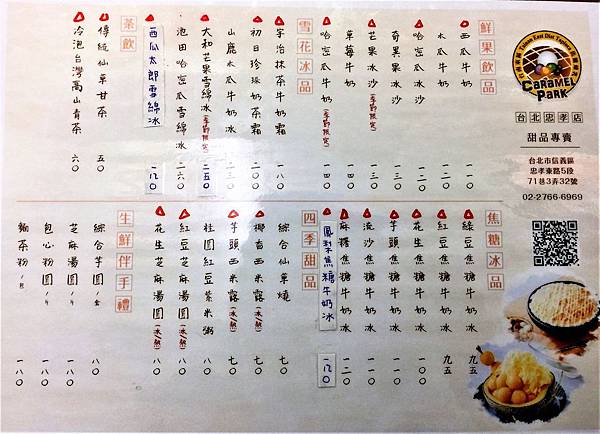 鮮果飲品
西瓜牛奶 一一〇
木瓜牛奶 一一〇
哈密瓜牛奶
奇異果冰沙
芒果冰沙(季節限定)
草莓牛奶 一四〇
哈密瓜牛奶(季節限定) 一四〇
雪花冰品
宇治抹茶牛奶霜 一八〇
初日珍珠奶茶霜 二〇〇
山鹿木瓜牛奶冰 二三〇
大和芒果雪綿冰(季節限定) 二五〇
池田哈密瓜雪綿冰 二六〇
西瓜太郎雪綿冰 一八〇
茶飲
傳統仙草甘茶 五〇
冷泡台灣高山青茶 六〇
焦糖冰品
綠豆焦糖牛奶冰 九五
紅豆焦糖牛奶冰 九五
花生焦糖牛奶冰 一〇〇
芋頭焦糖牛奶冰 一〇〇
流沙焦糖牛奶冰 一一〇
麻糬焦糖牛奶冰 一二〇
鳳梨焦糖牛奶冰 一八〇
四季甜品
綜合仙草燒 七〇
椰香西米露(冰/熱) 七〇
芋頭西米露(冰/熱) 七〇
桂圓紅豆紫米粥 八〇
紅豆芝麻湯圓(冰/熱) 八〇
花生芝麻湯圓(冰/熱) 八〇
生鮮伴手禮
綜合芋圓 八〇
芝麻湯圓 一八〇
包心粉圓 一八〇
粉 一八〇
Taiwan East Dist Tapioca
CARAMEL PARK
台北忠孝店
甜品專賣
台北市信義區
忠孝東路5段
71巷3弄32號
02-2766-6969